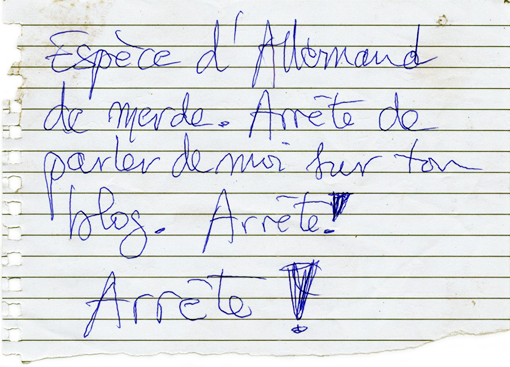 Espèce d'Allemand
de merde. Arrête de
parler de moi sur ton
blog. Arrête!
Arrête !